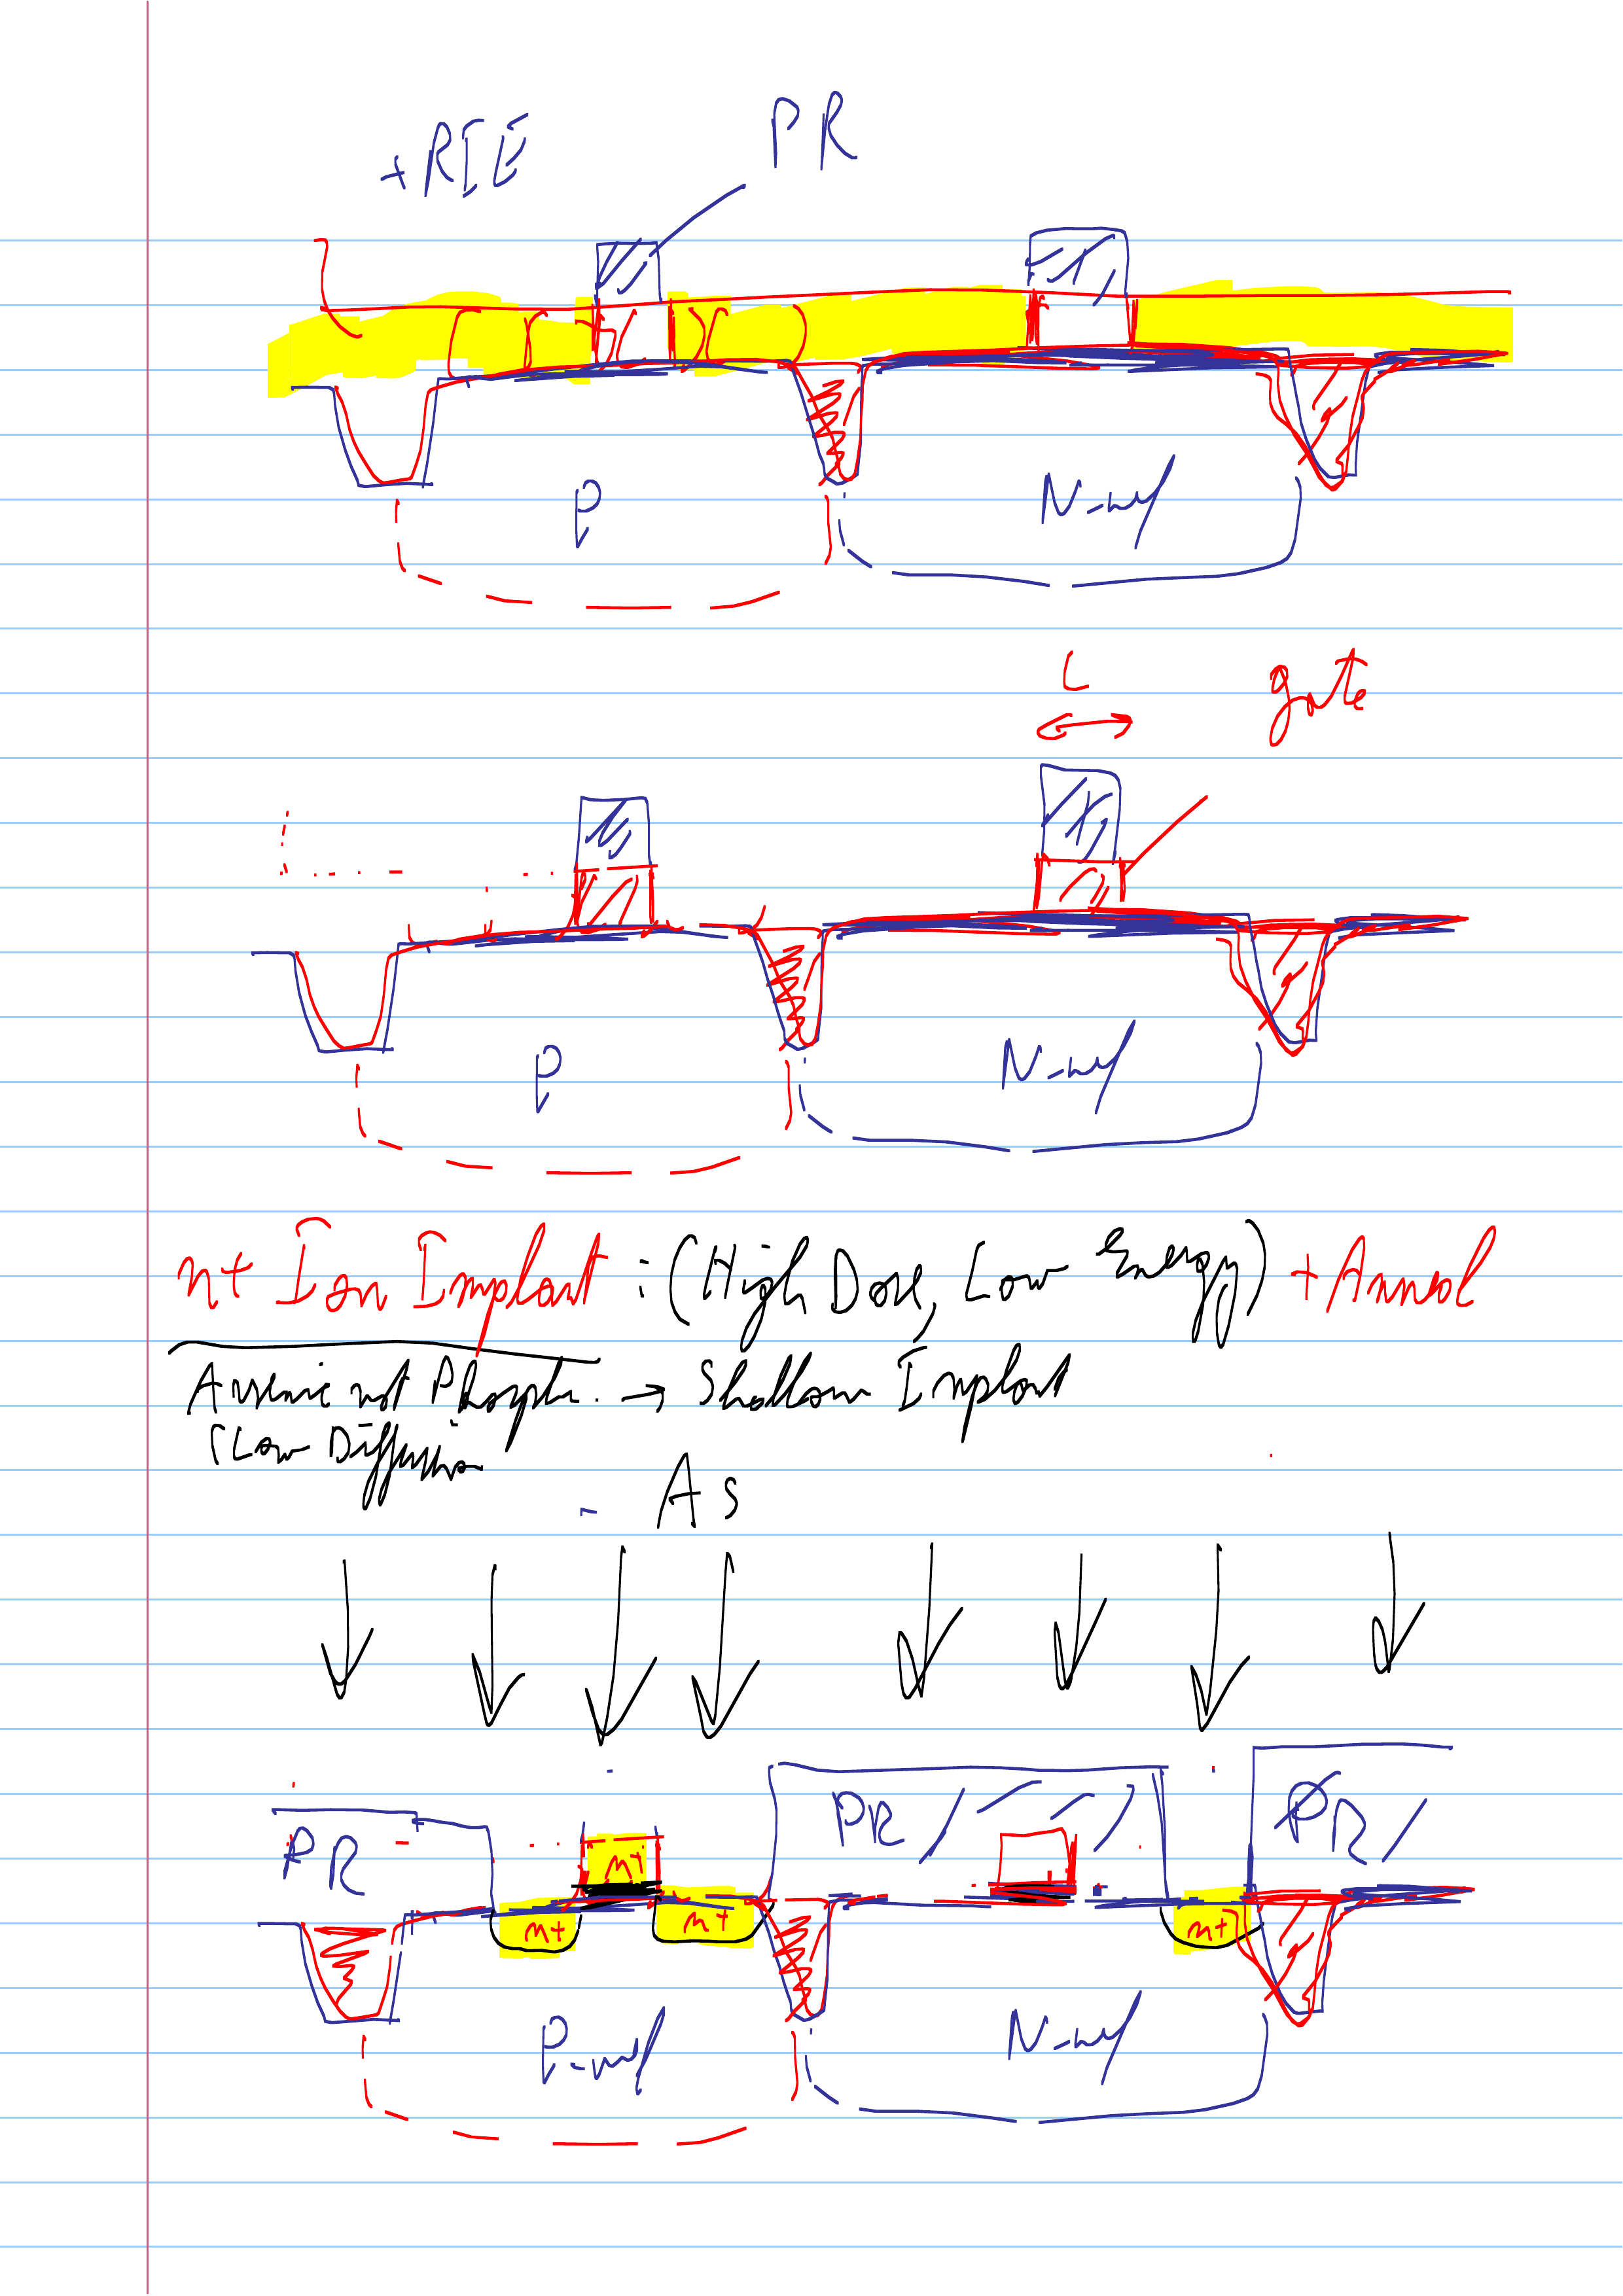 +RIE PR
P N-w
L gate
P N-w
n+ Ion Implant : (High Dose, Low Energy) + Anneal
Arsenic not Phosph. → Shallow Implant
Low Diffusion
- As
PR n+ PR PR
n+ n+ n+
P-w N-w